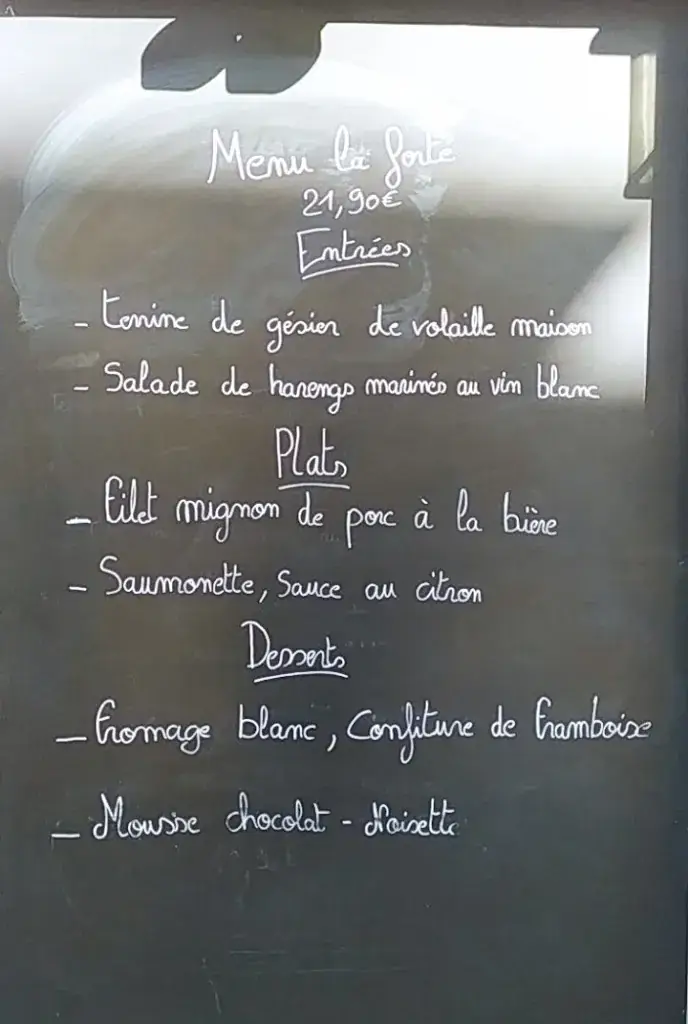 Menu la forte
21,90€
Entrées
- Terrine de gésier de volaille maison
- Salade de harengs marinés au vin blanc
Plats
- Filet mignon de porc à la bière
- Saumonette, Sauce au citron
Desserts
- Fromage blanc, Confiture de Framboise
- Mousse chocolat - Noisette